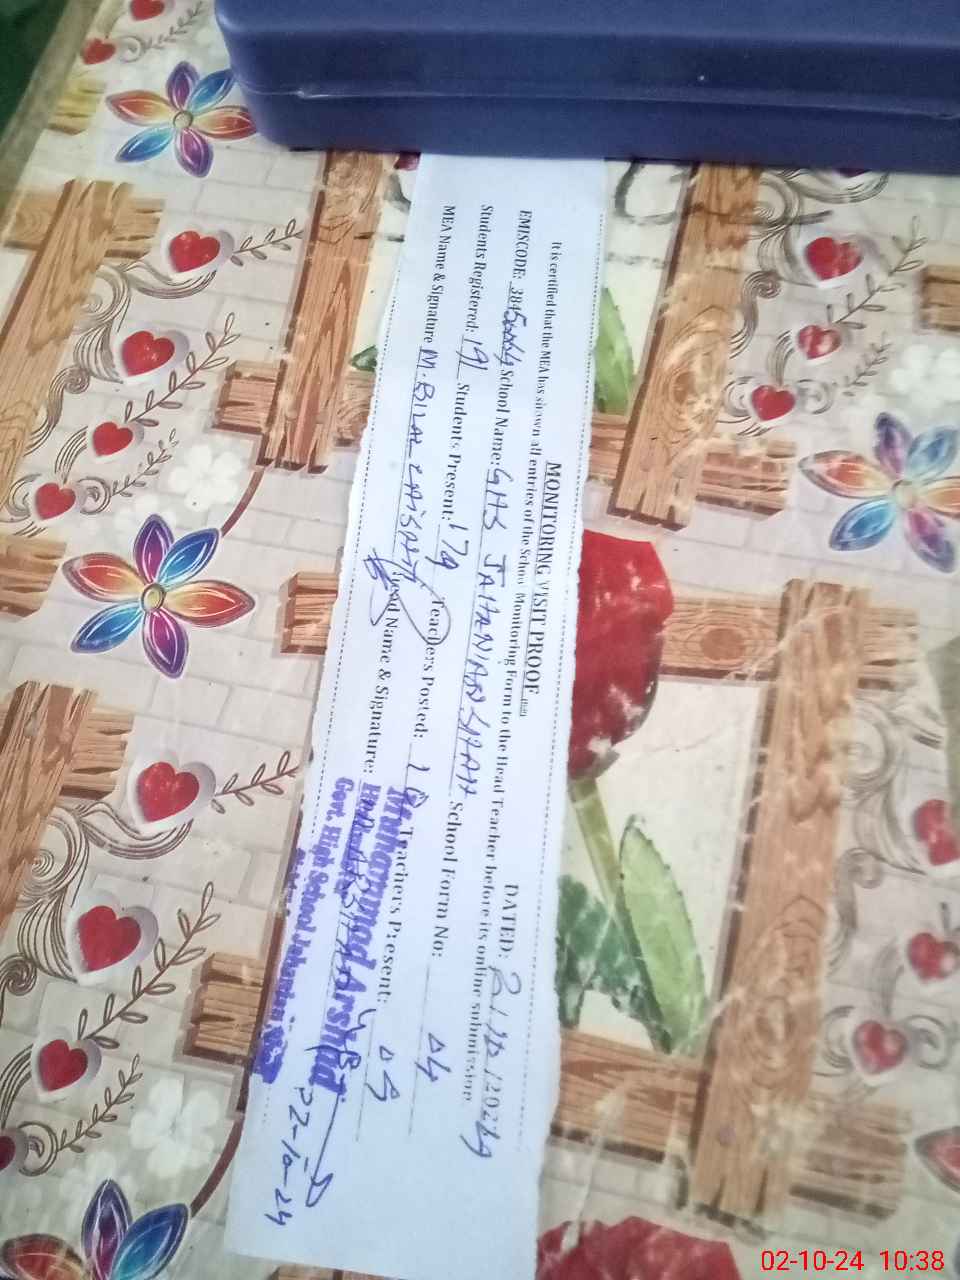 MONITORING VISIT PROOF
DATED: 2/10/2024
It is certified that the MEA has shown all entries of the School Monitoring Form to the Head Teacher before its online submission
EMISCODE: School Name: GHS JAHANIAN SHAH School Form No: 04
Students Registered: 191 Students Present: 179 Teachers Posted: Teachers Present: 09
MEA Name & Signature M. BILAL Head Name & Signature:
Muhammad Arshad
Govt. High School Jahanian Shah
02-10-24 10:38